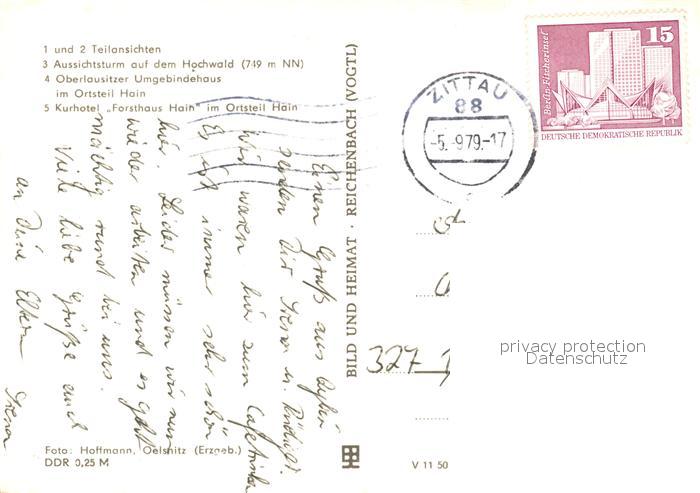 1 und 2 Teilansichten
3 Aussichtsturm auf dem Hochwald (749 m NN)
4 Oberlausitzer Umgebindehaus
im Ortsteil Hain
5 Kurhotel „Forsthaus Hain" im Ortsteil Hain
Einen Gruß aus
senden Dir u.
Wir waren hier zum
Es ist immer sehr schön
hier. Leider müssen wir nun
wieder arbeiten und es geht
mächtig rund bei uns.
Viele liebe Grüße auch
an Deine Eltern
Foto: Hoffmann, Oelsnitz (Erzgeb.)
DDR 0,25 M
BILD UND HEIMAT · REICHENBACH (VOGTL)
V 11 50
ZITTAU
88
-5.-9.79.-17
15
Berlin-Fischerinsel
DEUTSCHE DEMOKRATISCHE REPUBLIK
327
privacy protection
Datenschutz